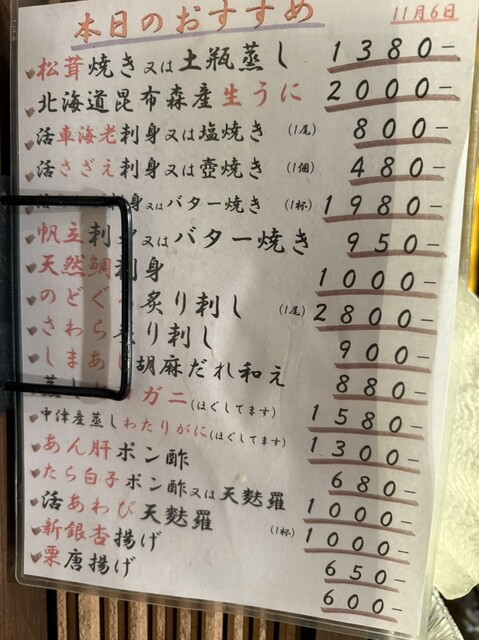 本日のおすすめ 11月6日
松茸焼き又は土瓶蒸し 1380-
北海道昆布森産生うに 2000-
活車海老刺身又は塩焼き (1尾) 800-
活さざえ刺身又は壺焼き (1個) 480-
活 身又はバター焼き (1杯) 1980-
帆立刺身又はバター焼き 950-
天然鯛刺身 1000-
のどぐろ炙り刺し (1尾) 2800-
さわら炙り刺し 900-
しまあじ胡麻だれ和え 880-
蒸し ガニ(ほぐしてます) 1580-
中津産蒸しわたりがに(ほぐしてます) 1300-
あん肝ポン酢 680-
たら白子ポン酢又は天麩羅 1000-
活あわび天麩羅 (1杯) 1000-
新銀杏揚げ 650-
栗唐揚げ 600-